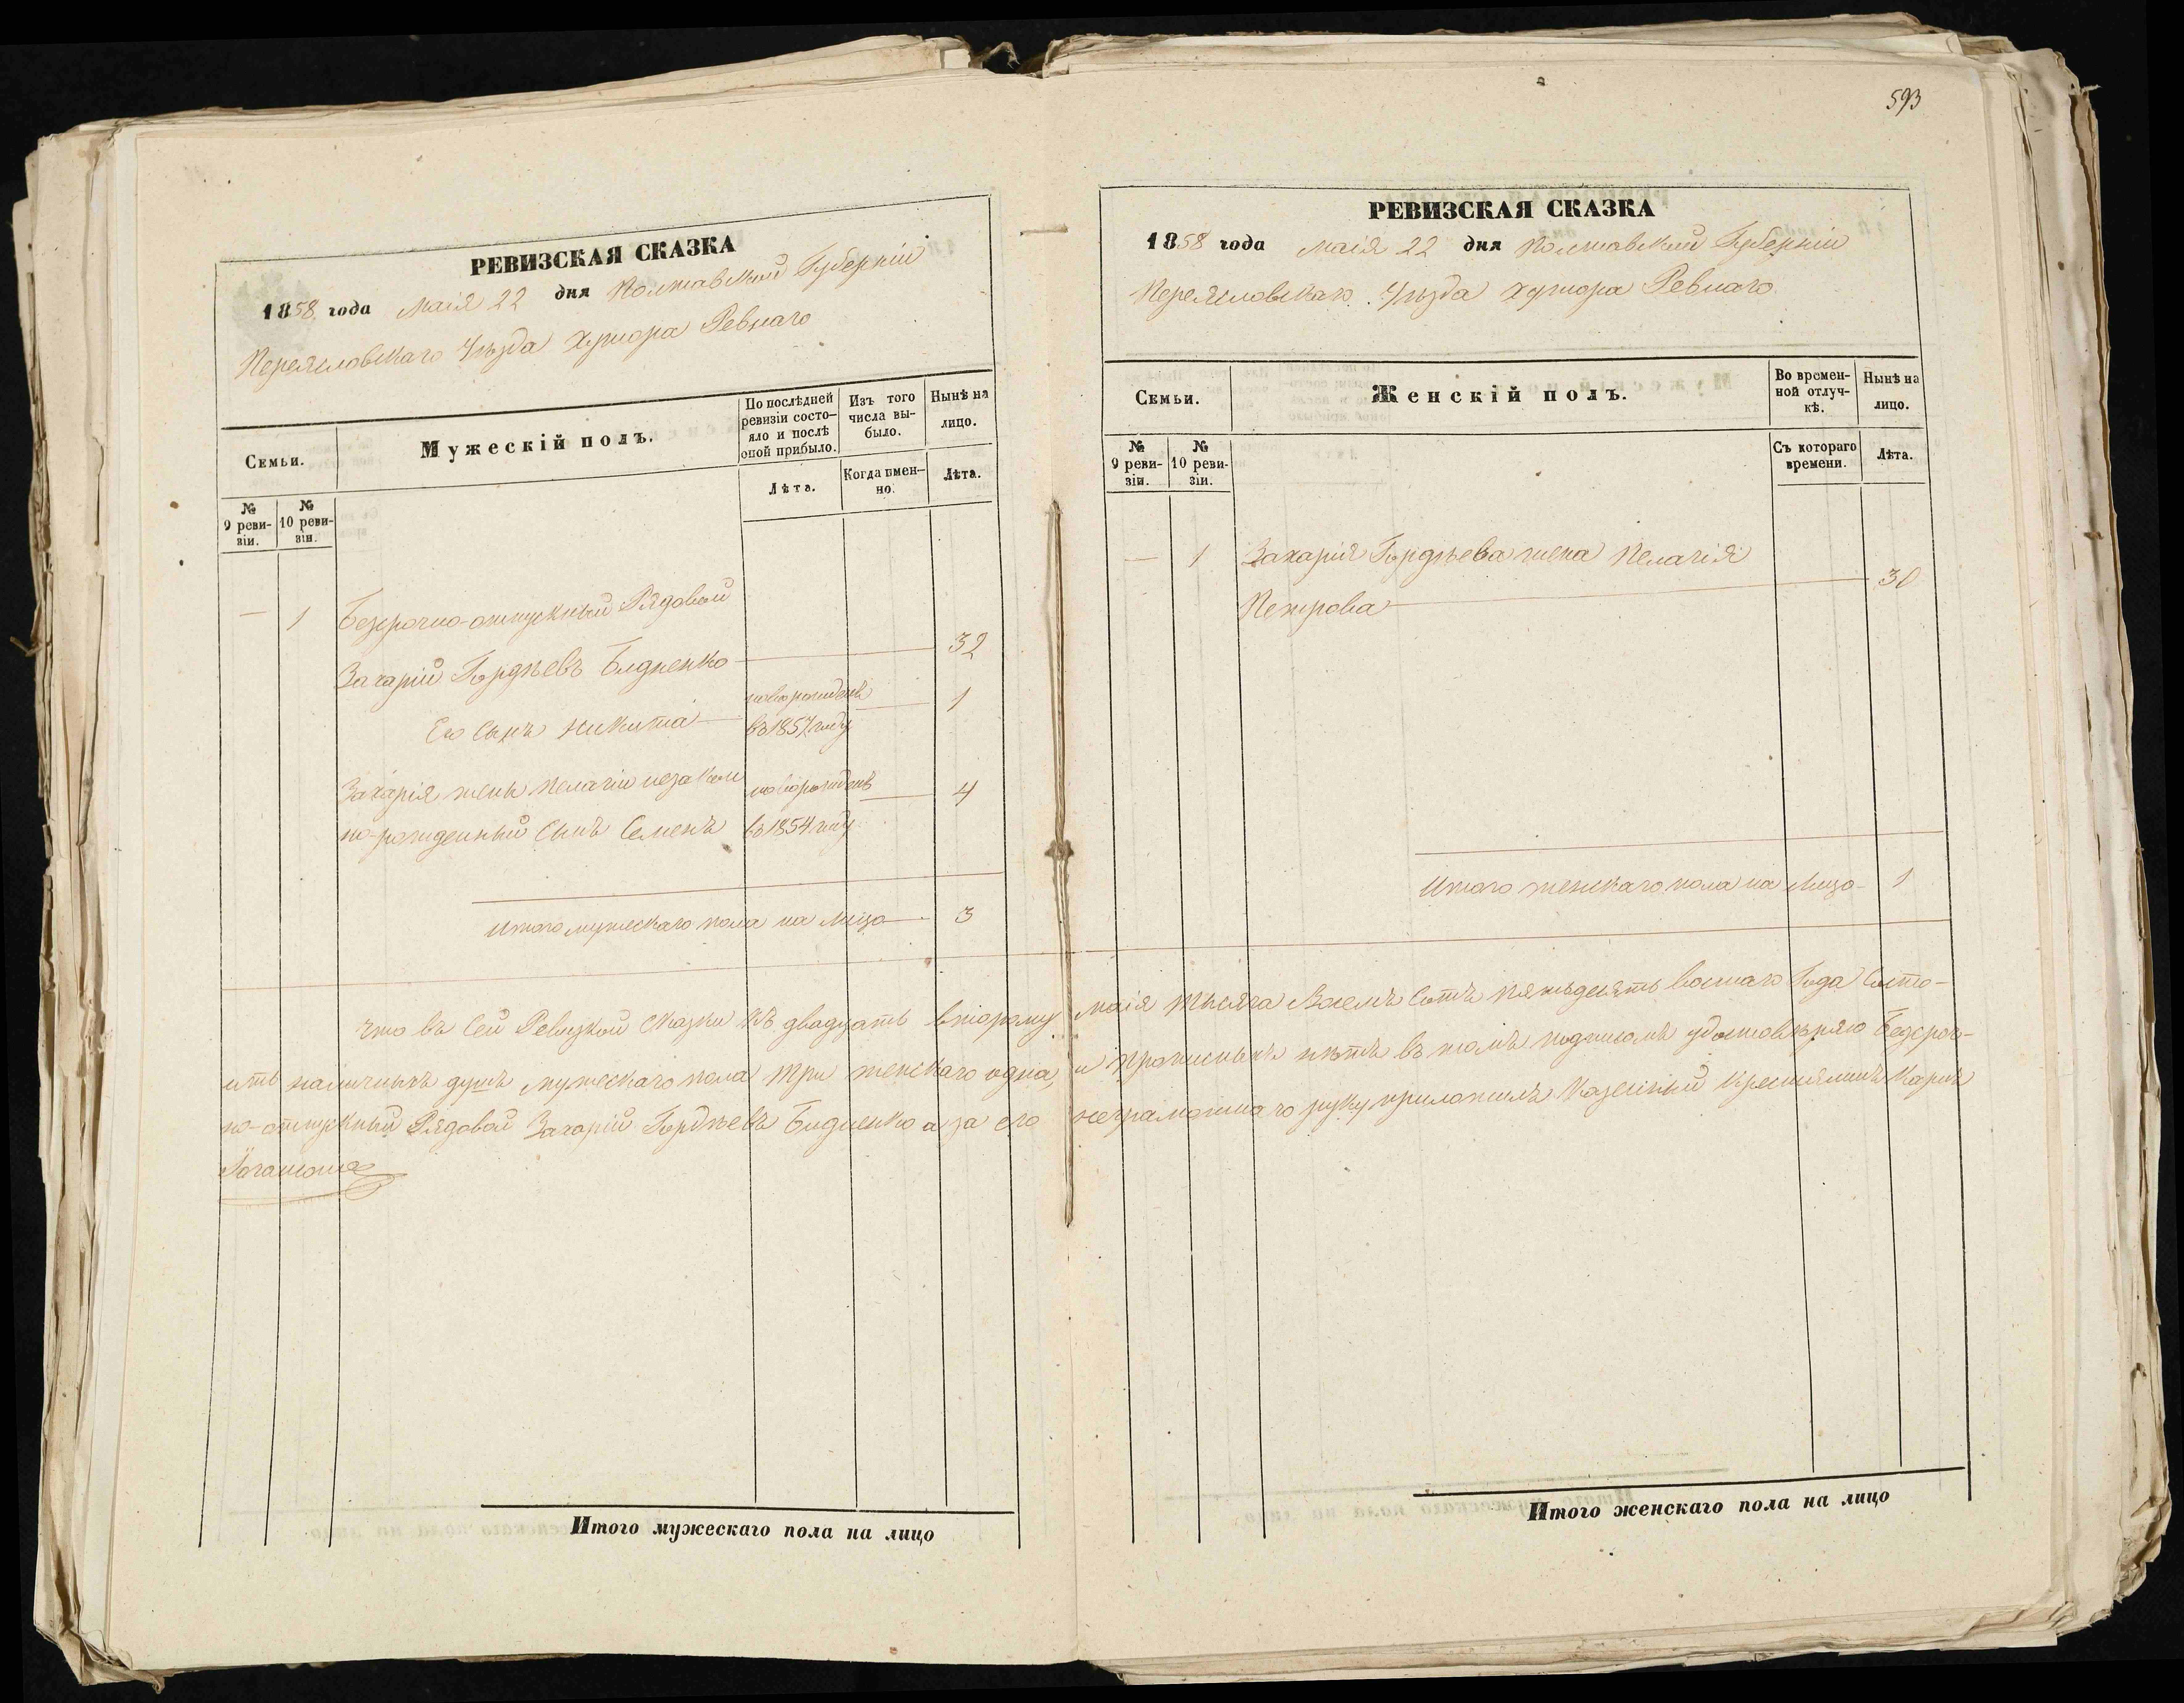 593
РЕВИЗСКАЯ СКАЗКА
1858 года Маія 22 дня Полтавской Губерніи
Переясловскаго Уѣзда Хутора Ревнаго
Семьи.
Мужескій полъ.
По послѣдней ревизіи состояло и послѣ оной прибыло.
Изъ того числа выбыло.
Нынѣ на лицо.
№ 9 ревизіи.
№ 10 ревизіи.
Лѣта.
Когда имен-но.
Лѣта.
— 1 Безсрочно-отпускный Рядовой
Захарій Гордѣевъ Бидненко 32
Его Сынъ Никита новорожденъ въ 1857 году 1
Захарія жены Пелагіи незакон
но-рожденный Сынъ Семенъ новорожденъ въ 1854 году 4
Итого мужескаго пола на лицо 3
РЕВИЗСКАЯ СКАЗКА
1858 года Маія 22 дня Полтавской Губерніи
Переясловскаго Уѣзда Хутора Ревнаго
Семьи.
Женскій полъ.
Во времен-ной отлуч-кѣ.
Нынѣ на лицо.
№ 9 реви-зіи.
№ 10 реви-зіи.
Съ котораго времени.
Лѣта.
— 1 Захарія Гордѣева жена Пелагія
Петрова 30
Итого женскаго пола на лицо 1
Что въ Сей Ревизкой Сказки къ двадцать второму маія тысяча Восемъ Сотъ пятьдесятъ восмаго Года Состо-
итъ наличныхъ душъ мужескаго пола три женскаго одна, и прописныхъ нѣтъ въ томъ подписомъ удостовѣряю Безсроч-
но-отпускный Рядовой Захарій Гордѣевъ Бидненко а за его неграмотнаго руку приложилъ Казенный Крестьянинъ Карпъ
Итого мужескаго пола на лицо
Итого женскаго пола на лицо